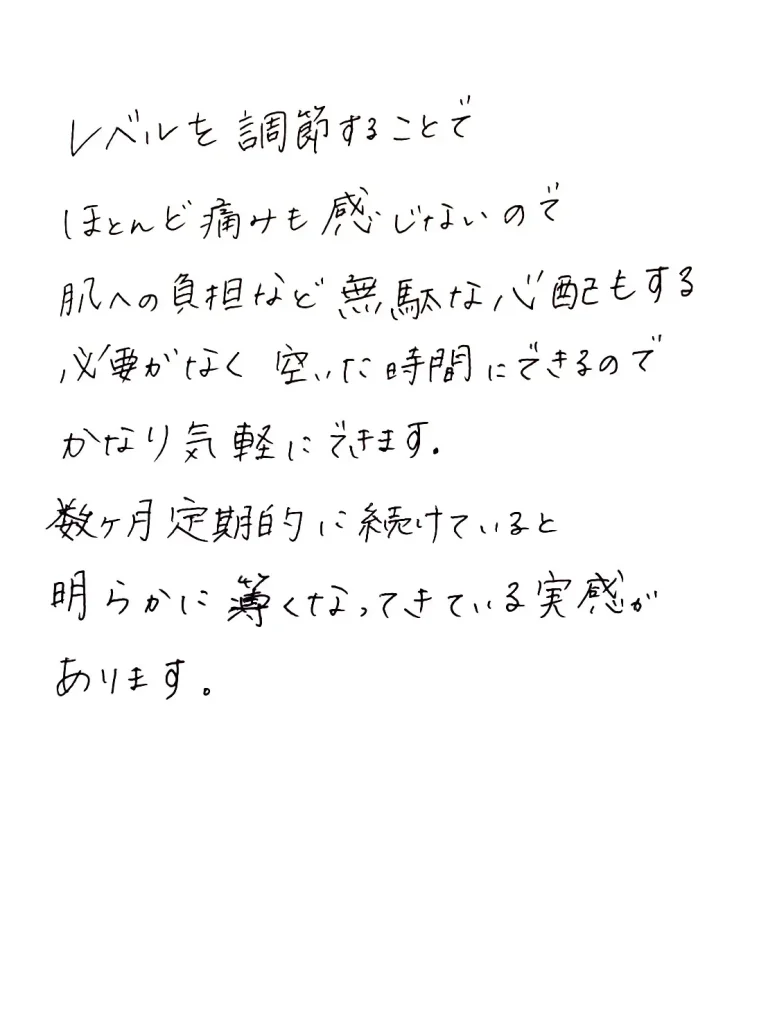 レベルを調節することで
ほとんど痛みも感じないので
肌への負担など無駄な心配もする
必要がなく 空いた時間にできるので
かなり気軽にできます.
数ヶ月定期的に続けていると
明らかに薄くなってきている実感が
あります。